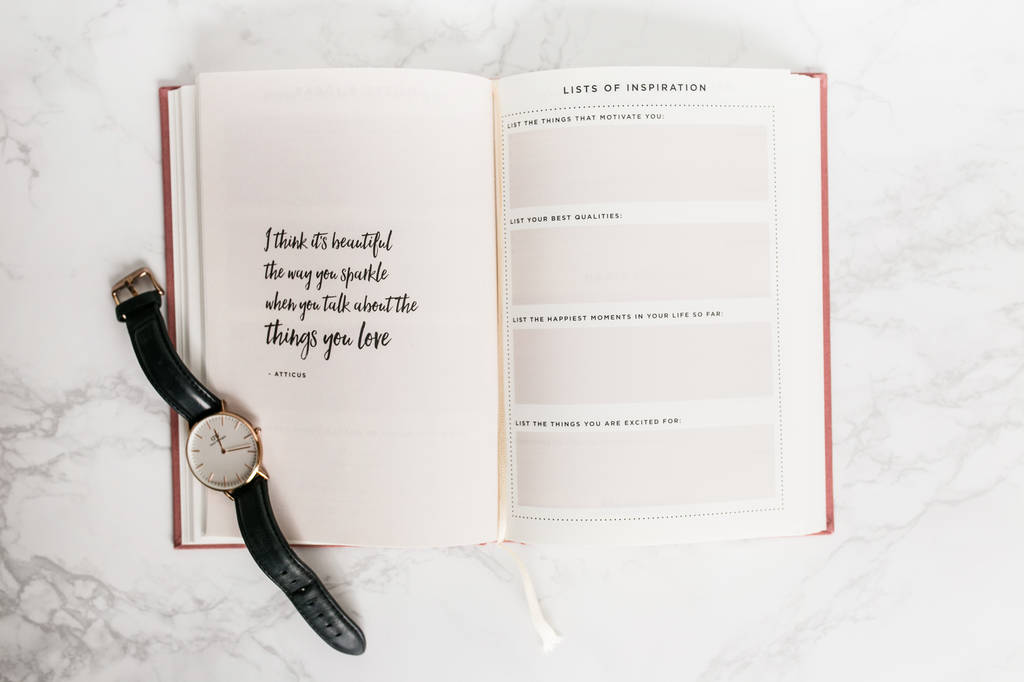 I think it's beautiful
the way you sparkle
when you talk about the
things you love
- ATTICUS
LISTS OF INSPIRATION
LIST THE THINGS THAT MOTIVATE YOU:
LIST YOUR BEST QUALITIES:
LIST THE HAPPIEST MOMENTS IN YOUR LIFE SO FAR:
LIST THE THINGS YOU ARE EXCITED FOR: